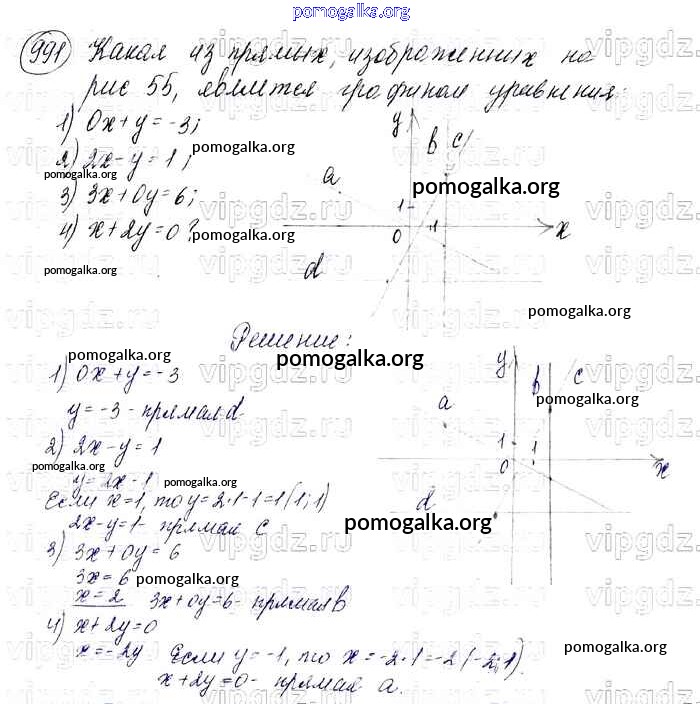 pomogalka.org
991 Какая из прямых, изображенных на
рис 55, является графиком уравнения:
1) 0x+y=-3;
2) 2x-y=1;
pomogalka.org
3) 3x+0y=6;
4) x+2y=0?
pomogalka.org
pomogalka.org
y
b
c
a
pomogalka.org
1
0
1
x
d
pomogalka.org
vipgdz.ru
Решение:
pomogalka.org
pomogalka.org
1) 0x+y=-3
y=-3 - прямая d
2) 2x-y=1
pomogalka.org
y=2x-1
pomogalka.org
Если x=1, то y=2·1-1=1 (1;1)
2x-y=1- прямая c
3) 3x+0y=6
3x=6
pomogalka.org
x=2 3x+0y=6- прямая b
4) x+2y=0
x=-2y Если y=-1, то x=-2·1=-2 (-2;1)
x+2y=0- прямая a.
y
b
c
pomogalka.org
a
1
0
1
x
d
pomogalka.org
pomogalka.org
vipgdz.ru